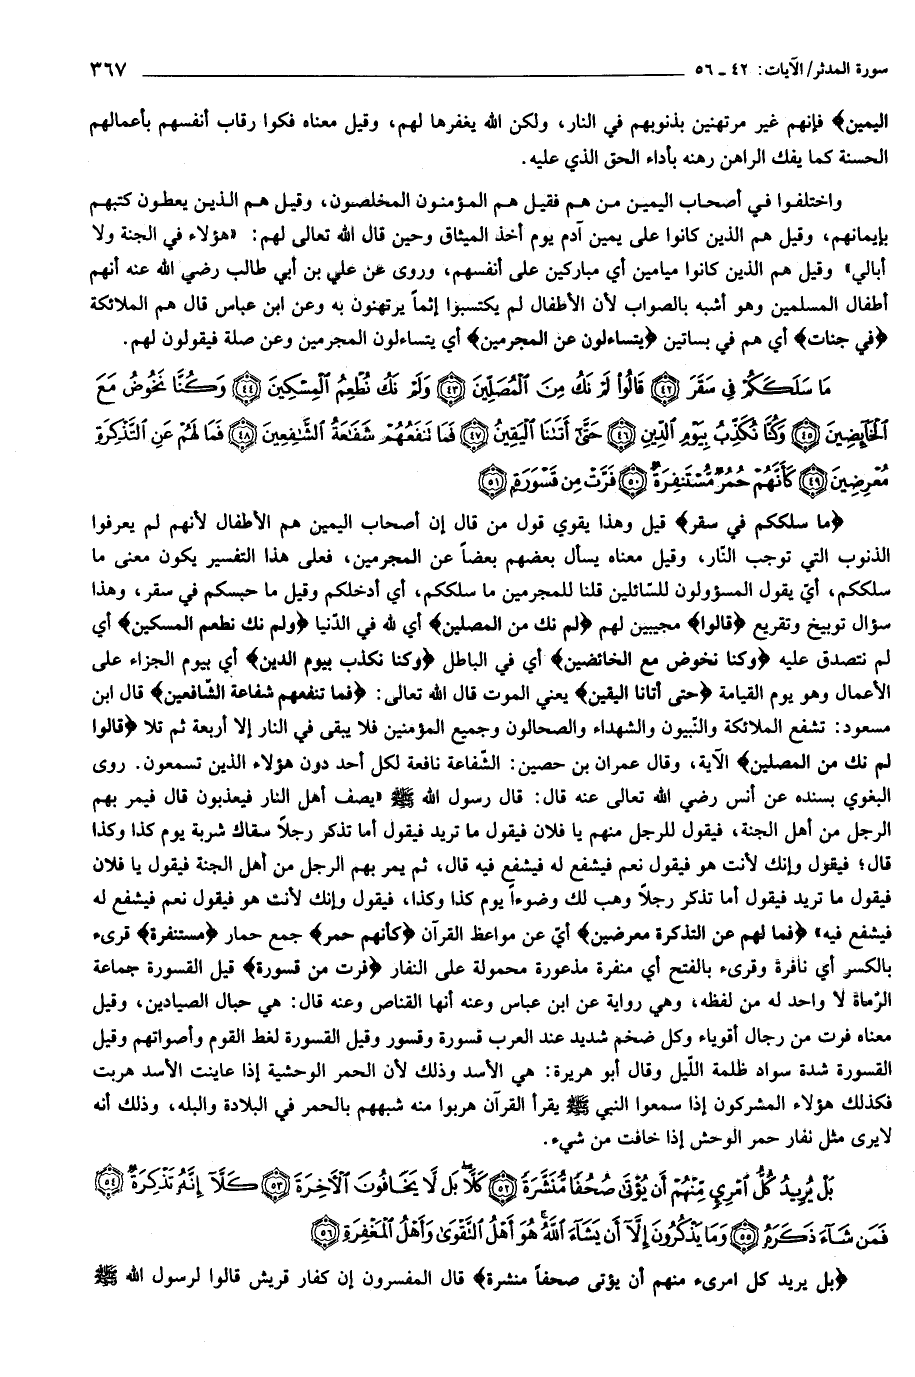 سورة المدثر/ الآيات: ٤٢ ـ ٥٦ ٣٦٧
اليمين﴾ فإنهم غير مرتهنين بذنوبهم في النار، ولكن الله يغفرها لهم، وقيل معناه فكوا رقاب أنفسهم بأعمالهم
الحسنة كما يفك الراهن رهنه بأداء الحق الذي عليه.
واختلفوا في أصحاب اليمين من هم فقيل هم المؤمنون المخلصون، وقيل هم الذين يعطون كتبهم
بإيمانهم، وقيل هم الذين كانوا على يمين آدم يوم أخذ الميثاق وحين قال الله تعالى لهم: «هؤلاء في الجنة ولا
أبالي» وقيل هم الذين كانوا ميامين أي مباركين على أنفسهم، وروى عن علي بن أبي طالب رضي الله عنه أنهم
أطفال المسلمين وهو أشبه بالصواب لأن الأطفال لم يكتسبوا إثماً يرتهنون به وعن ابن عباس قال هم الملائكة
﴿في جنات﴾ أي هم في بساتين ﴿يتساءلون عن المجرمين﴾ أي يتساءلون المجرمين وعن صلة فيقولون لهم.
مَا سَلَكَكُمْ فِي سَقَرَ ﴿٤٢﴾ قَالُوا لَمْ نَكُ مِنَ ٱلْمُصَلِّينَ ﴿٤٣﴾ وَلَمْ نَكُ نُطْعِمُ ٱلْمِسْكِينَ ﴿٤٤﴾ وَكُنَّا نَخُوضُ مَعَ
ٱلْخَآئِضِينَ ﴿٤٥﴾ وَكُنَّا نُكَذِّبُ بِيَوْمِ ٱلدِّينِ ﴿٤٦﴾ حَتَّىٰٓ أَتَىٰنَا ٱلْيَقِينُ ﴿٤٧﴾ فَمَا تَنفَعُهُمْ شَفَٰعَةُ ٱلشَّٰفِعِينَ ﴿٤٨﴾ فَمَا لَهُمْ عَنِ ٱلتَّذْكِرَةِ
مُعْرِضِينَ ﴿٤٩﴾ كَأَنَّهُمْ حُمُرٌ مُّسْتَنفِرَةٌ ﴿٥٠﴾ فَرَّتْ مِن قَسْوَرَةٍ ﴿٥١﴾
﴿ما سلككم في سقر﴾ قيل وهذا يقوي قول من قال إن أصحاب اليمين هم الأطفال لأنهم لم يعرفوا
الذنوب التي توجب النّار، وقيل معناه يسأل بعضهم بعضاً عن المجرمين، فعلى هذا التفسير يكون معنى ما
سلككم، أيّ يقول المسؤولون للسّائلين قلنا للمجرمين ما سلككم، أي أدخلكم وقيل ما حبسكم في سقر، وهذا
سؤال توبيخ وتقريع ﴿قالوا﴾ مجيبين لهم ﴿لم نك من المصلين﴾ أي لله في الدّنيا ﴿ولم نك نطعم المسكين﴾ أي
لم نتصدق عليه ﴿وكنا نخوض مع الخائضين﴾ أي في الباطل ﴿وكنا نكذب بيوم الدين﴾ أي بيوم الجزاء على
الأعمال وهو يوم القيامة ﴿حتى أتانا اليقين﴾ يعني الموت قال الله تعالى: ﴿فما تنفعهم شفاعة الشّافعين﴾ قال ابن
مسعود: تشفع الملائكة والنّبيون والشهداء والصحالون وجميع المؤمنين فلا يبقى في النار إلا أربعة ثم تلا ﴿قالوا
لم نك من المصلين﴾ الآية، وقال عمران بن حصين: الشّفاعة نافعة لكل أحد دون هؤلاء الذين تسمعون. روى
البغوي بسنده عن أنس رضي الله تعالى عنه قال: قال رسول الله ﷺ «يصف أهل النار فيعذبون قال فيمر بهم
الرجل من أهل الجنة، فيقول للرجل منهم يا فلان فيقول ما تريد فيقول أما تذكر رجلاً سقاك شربة يوم كذا وكذا
قال؛ فيقول وإنك لأنت هو فيقول نعم فيشفع له فيشفع فيه قال، ثم يمر بهم الرجل من أهل الجنة فيقول يا فلان
فيقول ما تريد فيقول أما تذكر رجلاً وهب لك وضوءاً يوم كذا وكذا، فيقول وإنك لأنت هو فيقول نعم فيشفع له
فيشفع فيه» ﴿فما لهم عن التذكرة معرضين﴾ أيّ عن مواعظ القرآن ﴿كأنهم حمر﴾ جمع حمار ﴿مستنفرة﴾ قرىء
بالكسر أي نافرة وقرىء بالفتح أي منفرة مذعورة محمولة على النفار ﴿فرت من قسورة﴾ قيل القسورة جماعة
الرّماة لا واحد له من لفظه، وهي رواية عن ابن عباس وعنه أنها القناص وعنه قال: هي حبال الصيادين، وقيل
معناه فرت من رجال أقوياء وكل ضخم شديد عند العرب قسورة وقسور وقيل القسورة لغط القوم وأصواتهم وقيل
القسورة شدة سواد ظلمة اللّيل وقال أبو هريرة: هي الأسد وذلك لأن الحمر الوحشية إذا عاينت الأسد هربت
فكذلك هؤلاء المشركون إذا سمعوا النبي ﷺ يقرأ القرآن هربوا منه شبههم بالحمر في البلادة والبله، وذلك أنه
لايرى مثل نفار حمر الوحش إذا خافت من شيء.
بَلْ يُرِيدُ كُلُّ ٱمْرِئٍ مِّنْهُمْ أَن يُؤْتَىٰ صُحُفًا مُّنَشَّرَةً ﴿٥٢﴾ كَلَّا ۖ بَل لَّا يَخَافُونَ ٱلْآخِرَةَ ﴿٥٣﴾ كَلَّآ إِنَّهُ تَذْكِرَةٌ ﴿٥٤﴾
فَمَن شَآءَ ذَكَرَهُ ﴿٥٥﴾ وَمَا يَذْكُرُونَ إِلَّآ أَن يَشَآءَ ٱللَّهُ ۚ هُوَ أَهْلُ ٱلتَّقْوَىٰ وَأَهْلُ ٱلْمَغْفِرَةِ ﴿٥٦﴾
﴿بل يريد كل امرىء منهم أن يؤتى صحفاً منشرة﴾ قال المفسرون إن كفار قريش قالوا لرسول الله ﷺ